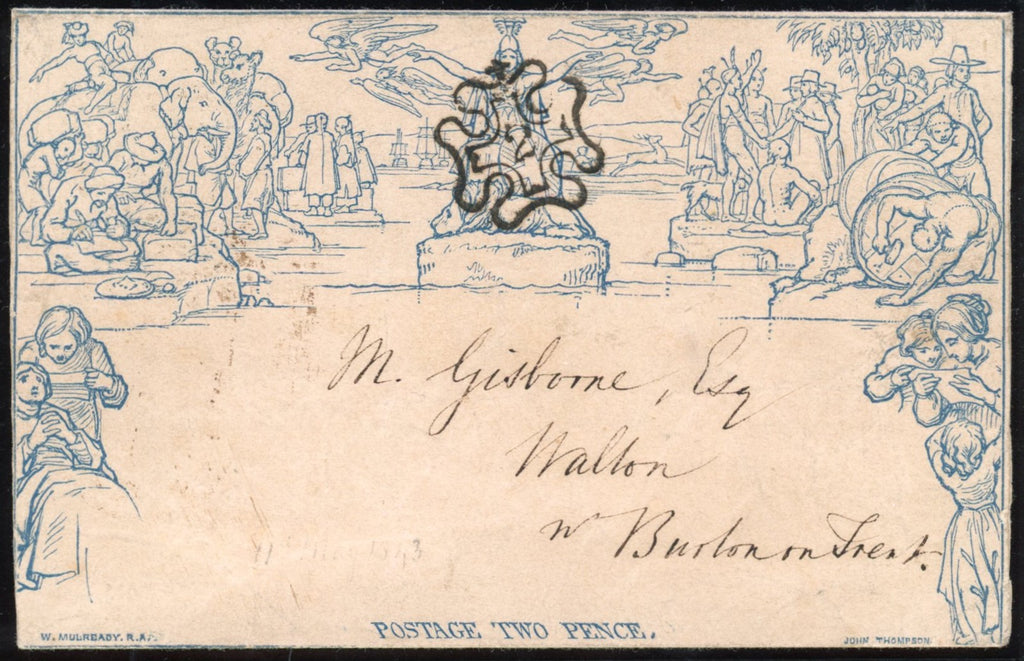 M. Gisborne, Esq
Walton
nr Burton on Trent.
POSTAGE TWO PENCE.
W. MULREADY. R.A.
JOHN THOMPSON